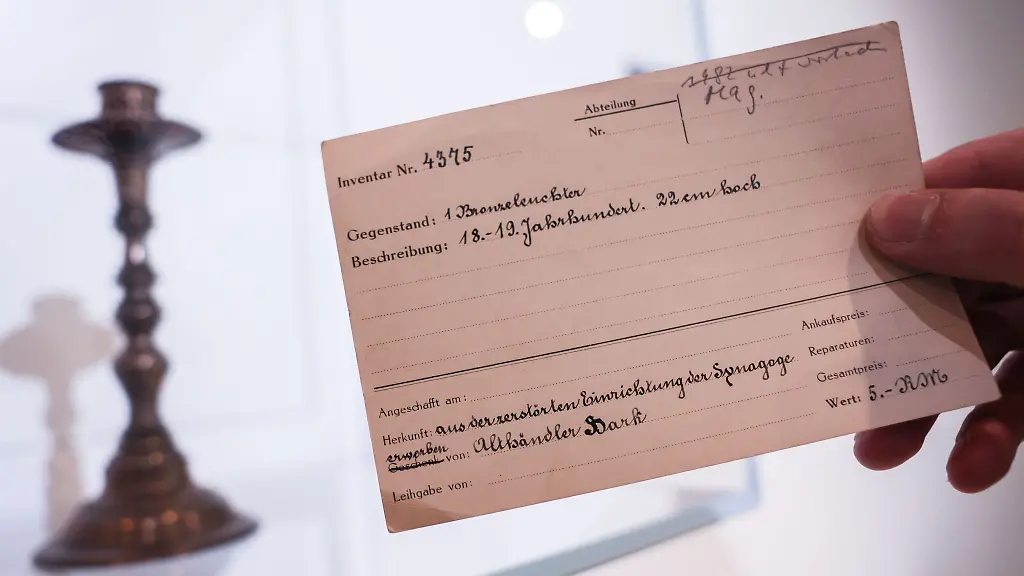 1982
Mag.
Abteilung
Nr.
Inventar Nr. 4375
Gegenstand: 1 Bronzeleuchter
Beschreibung: 18.-19. Jahrhundert. 22 cm hoch
Ankaufspreis:
Reparaturen:
Gesamtpreis:
Wert: 5.- RM
Angeschafft am:
Herkunft: aus der zerstörten Einrichtung der Synagoge
erworben
Geschenk von: Althändler Hark
Leihgabe von: